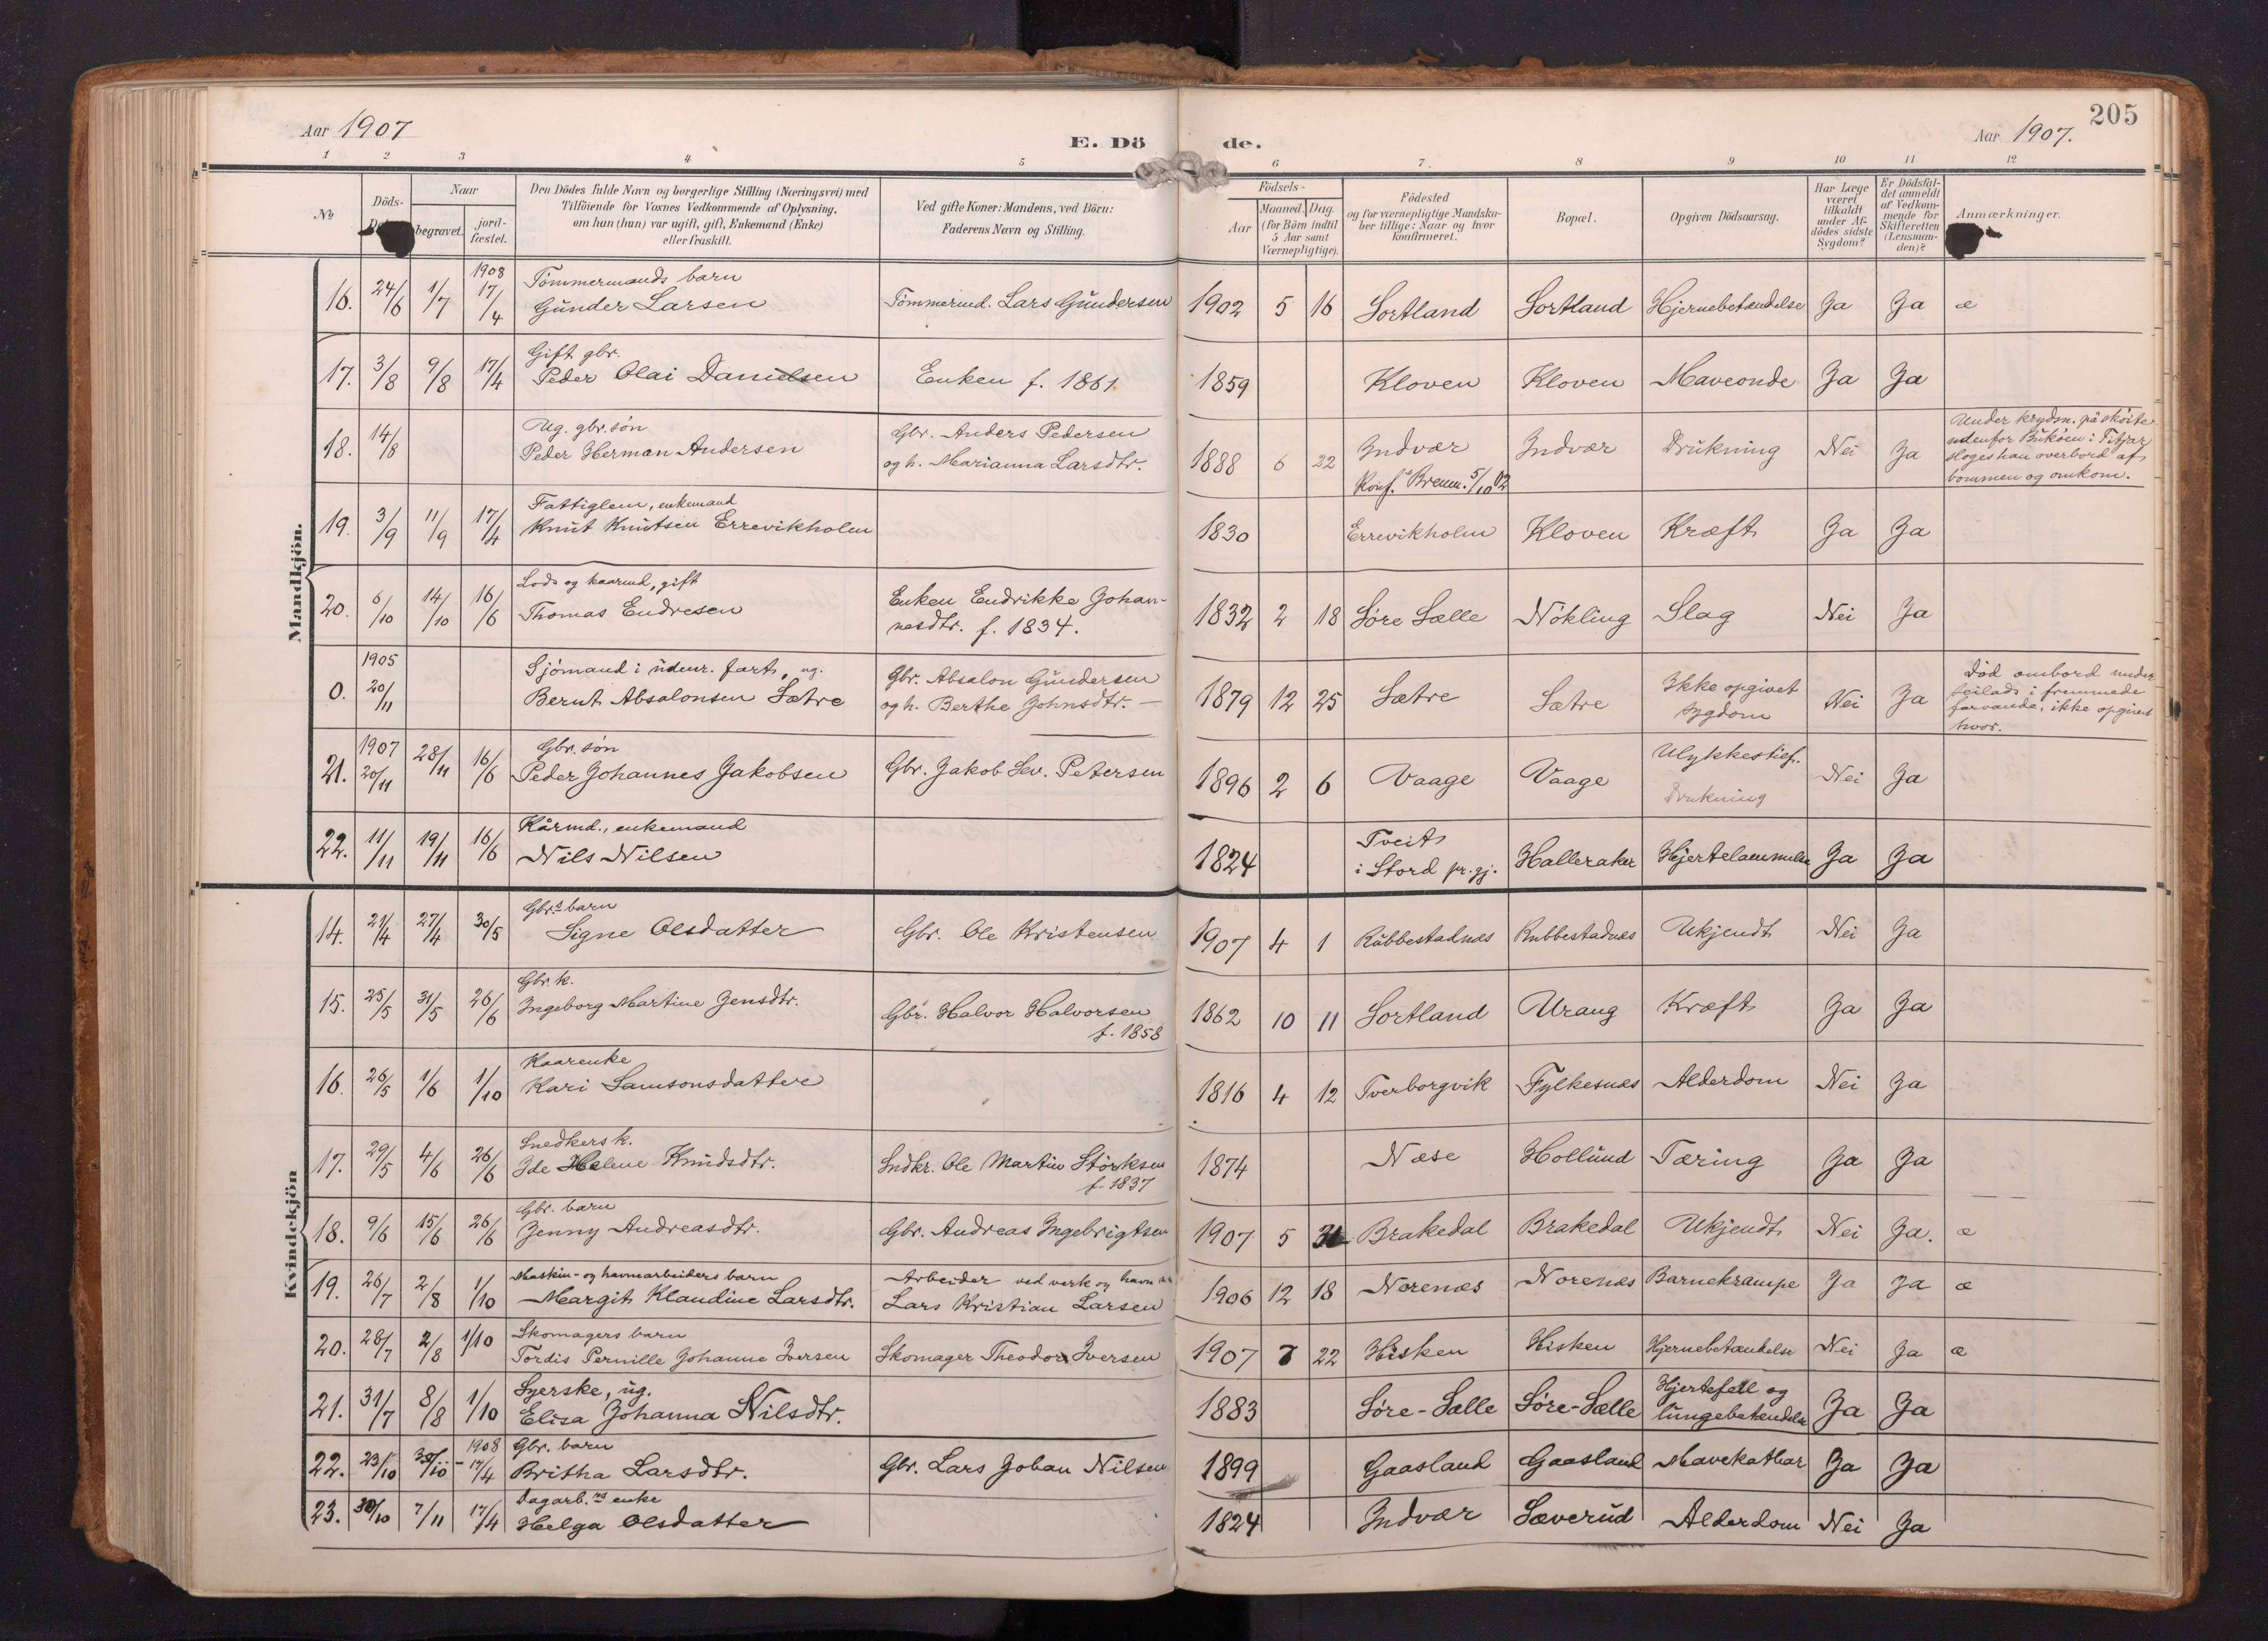 205
Aar 1907
E. Dö de.
Aar 1907.
1 2 3 4 5 6 7. 8 9 10 11 12
№
Döds-
Naar
begravet.
jord-
fæstet.
Den Dödes fulde Navn og borgerlige Stilling (Næringsvei) med
Tilföiende for Voxnes Vedkommende af Oplysning,
om han (hun) var ugift, gift, Enkemand (Enke)
eller fraskilt.
Ved gifte Koner: Mandens, ved Börn:
Faderens Navn og Stilling.
Födsels-
Aar
Maaned. Dag.
(for Börn indtil
5 Aar samt
Værnepligtige).
Födested
og for værnepligtige Mandska-
ber tillige: Naar og hvor
konfirmeret.
Bopæl.
Opgiven Dödsaarsag.
Har Læge
været
tilkaldt
under Af-
dödes sidste
Sygdom?
Er Dödsfal-
det anmeldt
af Vedkom-
mende for
Skifteretten
(Lensman-
den)?
Anmærkninger.
Mandkjön.
1908
Tømmermands barn
16. 24/6 1/7 17/4 Gunder Larsen Tømmermd. Lars Gundersen 1902 5 16 Sortland Sortland Hjernebetændelse Ja Ja æ
Gift gbr.
17. 3/8 9/8 17/4 Peder Olai Danielsen Enken f. 1861 1859 Kloven Kloven Maveonde Ja Ja
Ug. gbr. søn
18. 14/8 Peder Herman Andersen
Gbr. Anders Pedersen
og h. Marianna Larsdtr.
1888 6 22 Indvær Indvær Drukning Nei Ja
Konf. i Bremn. 5/10 02
Under krydsn. på skøite
udenfor Bukøen i Fitjar
sloges han overbord af
bommen og omkom.
Fattiglem, enkemand
19. 3/9 11/9 17/4 Knut Knutsen Errevikholm 1830 Errevikholm Kloven Kræft Ja Ja
Lods og kaarmd, gift
20. 6/10 14/10 16/6 Thomas Endresen
Enken Endrikke Johan-
nesdtr. f. 1834.
1832 2 18 Søre Sælle Nökling Slag Nei Ja
1905
Sjömand i udenr. fart, ug.
0. 20/11 Bernt Absalonsen Sætre
Gbr. Absalon Gundersen
og h. Berthe Johnsdtr. —
1879 12 25 Sætre Sætre
Ikke opgivet
sygdom
Nei Ja
Död ombord under
seilads i fremmede
farvande, ikke opgivet
hvor.
1907
Gbr. søn
21. 20/11 28/11 16/6 Peder Johannes Jakobsen Gbr. Jakob Sev. Petersen 1896 2 6 Vaage Vaage
Ulykkestilf.
Drukning
Nei Ja
Kårmd., enkemand
22. 11/11 19/11 16/6 Nils Nilsen 1824
Tveit
i Stord pr.gj.
Halleraker Hjertelammelse Ja Ja
Kvindekjön
Gbr.s barn
14. 21/4 27/4 30/5 Signe Olsdatter Gbr. Ole Kristensen 1907 4 1 Rubbestadnæs Rubbestadnæs Ukjendt Nei Ja
Gbr. k.
15. 25/5 31/5 26/6 Ingeborg Martine Jensdtr. Gbr. Halvor Halvorsen
f. 1858
1862 10 11 Sortland Urang Kræft Ja Ja
Kaarenke
16. 26/5 1/6 1/10 Kari Samsonsdatter 1816 4 12 Tverborgvik Fylkesnæs Alderdom Nei Ja
Snedkers k.
17. 29/5 4/6 26/6 Ide Helene Knudsdtr. Sndkr. Ole Martin Störksen
f. 1837
1874 Næse Hollund Tæring Ja Ja
Gbr. barn
18. 9/6 15/6 26/6 Jenny Andreasdtr. Gbr. Andreas Ingebrigtsen 1907 5 31 Brakedal Brakedal Ukjendt Nei Ja. æ
Maskin- og havnearbeiders barn
19. 26/7 2/8 1/10 Margit Klaudine Larsdtr.
Arbeider ved verk og havn
Lars Kristian Larsen
1906 12 18 Norenæs Norenæs Barnekrampe Ja Ja æ
Skomagers barn
20. 28/7 2/8 1/10 Tordis Pernille Johanne Iversen Skomager Theodor Iversen 1907 7 22 Hisken Hisken Hjernebetændelse Nei Ja æ
Syerske, ug.
21. 31/7 8/8 1/10 Elisa Johanna Nilsdtr. 1883 Søre-Sælle Søre-Sælle
Hjertefeil og
lungebetændelse
Ja Ja
1908
Gbr. barn
22. 23/10 30/10 17/4 Britha Larsdtr. Gbr. Lars Johan Nilsen 1899 Gaasland Gaasland Mavekathar Ja Ja
Dagarb.rs enke
23. 30/10 7/11 17/4 Helga Olsdatter 1824 Indvær Sæverud Alderdom Nei Ja